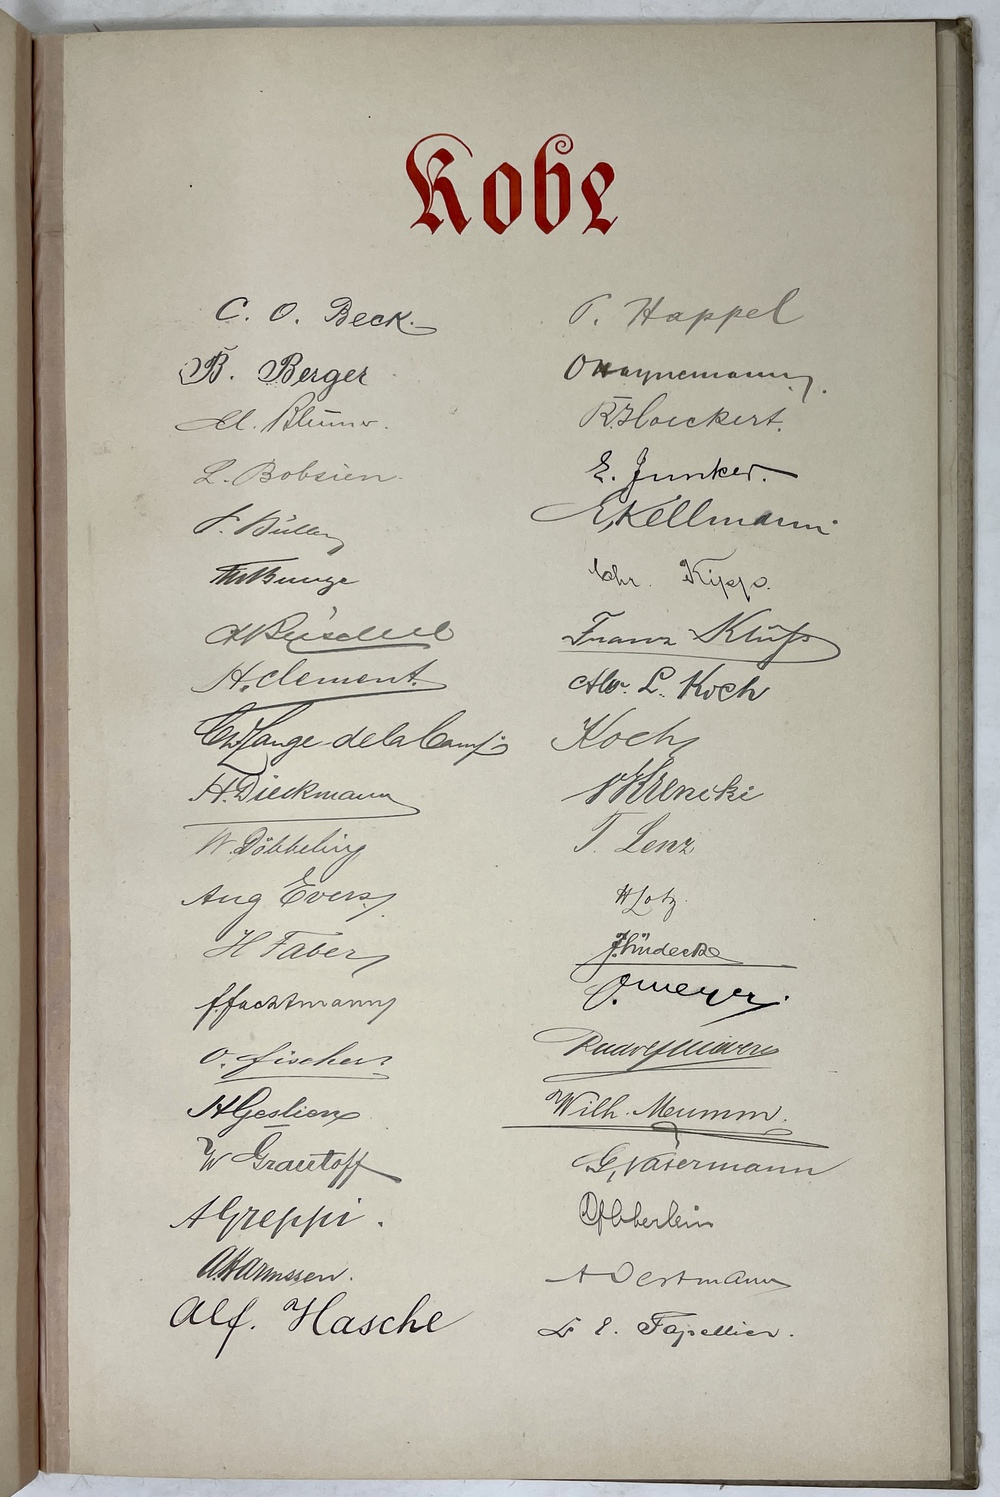 Kobe
C. O. Beck.
B. Berger
Blümer.
L. Bobsien.
F. Büller
Bunge
Büschel
H. Clement.
Lange-delaCamp
H. Dieckmann
W. Döbbeling
Aug Evers,
H Faber,
f. fachtmann
O. Fischer.
H Geslien
W Grautoff
A Greppi.
A. Harmssen.
Alf. Hasche
P. Happel
O Haynemann.
R. Hoeckert.
E. Junker.
E, Kellmann
Chr. Kipp.
Franz Klüfs
L. Koch
Koch,
Krencki
T. Lenz
H Lotz.
Lüdecke
O. Meyer.
Rudolf
Wilh. Meumm.
G, Näsermann
Oberlein
A Oestmann
E. Fapellier.